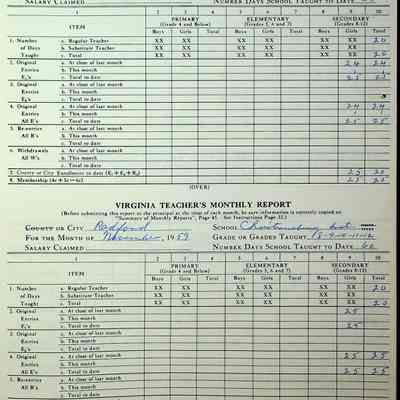 SALARY CLAIMED NUMBER DAYS SCHOOL TAUGHT TO DATE
1 2 3 4 5 6 7 8 9 10
ITEM PRIMARY (Grade 4 and Below) ELEMENTARY (Grades 5, 6 and 7) SECONDARY (Grades 8-12)
Boys Girls Total Boys Girls Total Boys Girls Total
1. Number a. Regular Teacher XX XX XX XX XX XX 20
of Days b. Substitute Teacher XX XX XX XX XX XX
Taught c. Total XX XX XX XX XX XX
2. Original a. At close of last month 24 24
Entries b. This month 1 1
E₁'s c. Total to date 25 25
3. Original a. At close of last month
Entries b. This month
E₂'s c. Total to date
4. Original a. At close of last month 24 24
Entries b. This month 1 1
All E's c. Total to date 25 25
5. Re-entries a. At close of last month
b. This month
All R's c. Total to date
6. Withdrawals a. At close of last month
b. This month
All W's c. Total to date
7. County or City Enrollment to date (E₁+E₂+R₂) 25 25
8. Membership (4c+5c-6c) 25 25
(OVER)
VIRGINIA TEACHER'S MONTHLY REPORT
(Before submitting this report to the principal at the close of each month, be sure information is correctly copied on
"Summary of Monthly Reports", Page 45. See Instructions Page 32.)
COUNTY OR CITY Radford SCHOOL Christiansburg Inst.
FOR THE MONTH OF November, 1959 GRADE OR GRADES TAUGHT 8-9-10-11-12
SALARY CLAIMED NUMBER DAYS SCHOOL TAUGHT TO DATE 60
1 2 3 4 5 6 7 8 9 10
ITEM PRIMARY (Grade 4 and Below) ELEMENTARY (Grades 5, 6 and 7) SECONDARY (Grades 8-12)
Boys Girls Total Boys Girls Total Boys Girls Total
1. Number a. Regular Teacher XX XX XX XX XX XX 20
of Days b. Substitute Teacher XX XX XX XX XX XX
Taught c. Total XX XX XX XX XX XX 20
2. Original a. At close of last month 25
Entries b. This month
E₁'s c. Total to date 25
3. Original a. At close of last month
Entries b. This month
E₂'s c. Total to date
4. Original a. At close of last month 25 25
Entries b. This month
All E's c. Total to date 25 25
5. Re-entries a. At close of last month
b. This month